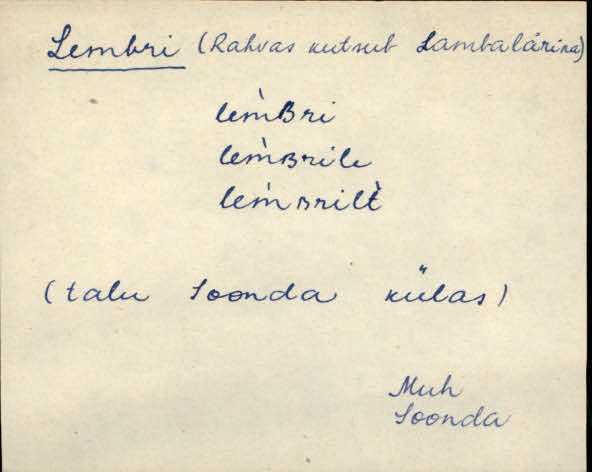 Lembri (Rahvas kutsub Lambalárina)
lem̀Bri
lem̀Brile
lem̀Brilt̀
(talu Soonda külas)
Muh
Soonda